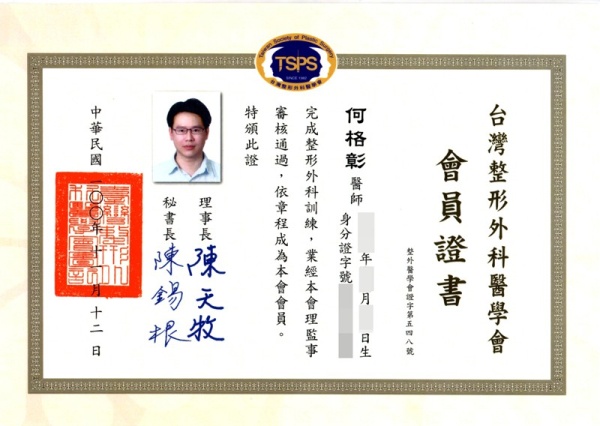 Taiwan Society of Plastic Surgery
TSPS
台灣整形外科醫學會
台灣整形外科醫學會
會員證書
整外醫學會證字第五四八號
何格彰醫師 年 月 日生
身分證字號
完成整形外科訓練，業經本會理監事
審核通過，依章程成為本會會員。
特頒此證
理事長 陳天牧
秘書長 陳錫根
中華民國一〇〇年十一月十二日